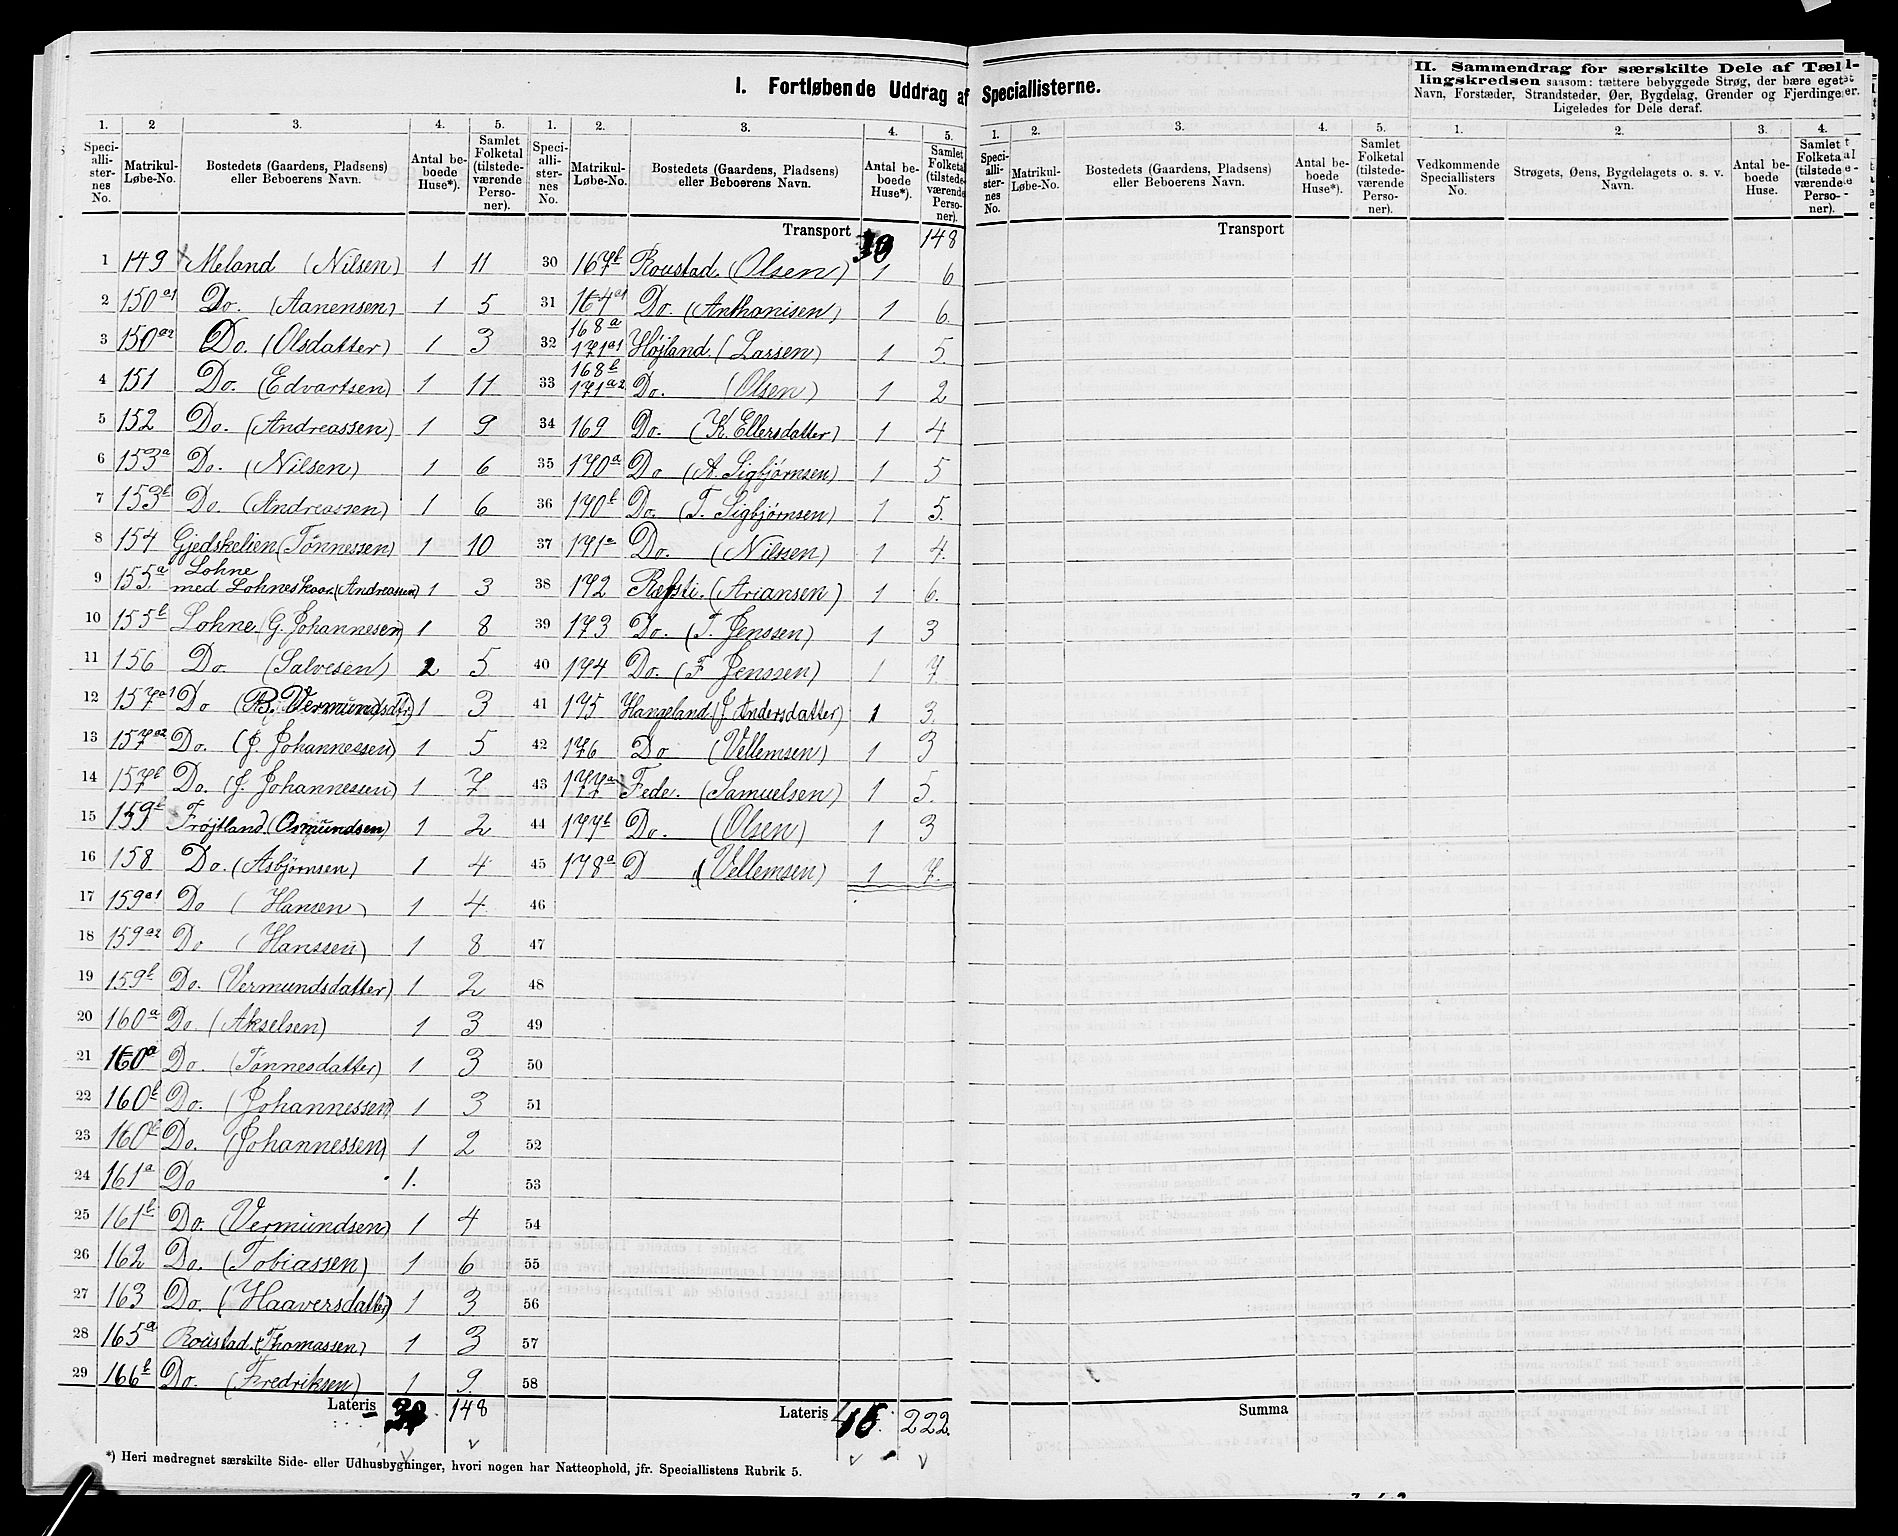 I. Fortløbende Uddrag af Speciallisterne.
1. Speci-alli-ster-nes No. | 2 Matrikul-Løbe-No. | 3. Bostedets (Gaardens, Pladsens) eller Beboerens Navn. | 4. Antal be-boede Huse*). | 5. Samlet Folketal (tilstede-værende Perso-ner).
1 149 Meland (Nilsen) 1 11
2 150a1 Do. (Aanensen) 1 5
3 150a2 Do. (Olsdatter) 1 3
4 151 Do. (Edvartsen) 1 11
5 152 Do. (Andreassen) 1 9
6 153a Do. (Nilsen) 1 6
7 153b Do. (Andreassen) 1 6
8 154 Gjedskelien (Tönnessen) 1 10
9 155a Lohne med Lohneskaar (Andreassen) 1 3
10 155b Lohne (G. Johannesen) 1 8
11 156 Do. (Salvesen) 2 5
12 157a1 Do (B. Vermundsdtr) 1 3
13 157a2 Do. (J. Johannessen) 1 5
14 157b Do. (J. Johannesen) 1 7
15 159b Frøjtland (Osmundsen) 1 2
16 158 Do. (Asbjørnsen) 1 4
17 159a1 Do (Hansen) 1 4
18 159a2 Do (Hanssen) 1 8
19 159b Do. (Vermundsdatter) 1 2
20 160a Do (Akselsen) 1 3
21 160a Do. (Tønnesdatter) 1 3
22 160b Do. (Johannessen) 1 3
23 160b Do. (Johannessen) 1 2
24 161a Do 1.
25 161b Do. (Vermundsen) 1 4
26 162 Do. (Tobiassen) 1 6
27 163 Do. (Haaversdatter) 1 3
28 165a Roustad. (Thomassen) 1 3
29 166b Do. (Fredriksen) 1 9.
Lateris 148
*) Heri medregnet særskilte Side- eller Udhusbygninger, hvori nogen har Natteophold, jfr. Speciallistens Rubrik 5.
1. Speci-alli-ster-nes No. | 2. Matrikul-Løbe-No. | 3. Bostedets (Gaardens, Pladsens) eller Beboerens Navn. | 4. Antal be-boede Huse*). | 5. Samlet Folketal (tilstede-værende Perso-ner).
Transport 30 148
30 167b Roustad. (Olsen) 1 6
31 164a1 Do. (Anthonisen) 1 6.
32 168a 171a1 Højland. (Larsen) 1 5.
33 168b 171a2 Do. (Olsen) 1 2
34 169 Do. (K. Ellersdatter) 1 4
35 170a Do (A. Sigbjørnsen) 1 5
36 170b Do. (T. Sigbjørnsen) 1 5.
37 171a Do. (Nilssen) 1 4.
38 172 Refsti. (Ariansen) 1 6.
39 173 Do. (T. Jenssen) 1 3
40 174 Do. (F Jenssen) 1 7.
41 175 Hangeland. (J. Andersdatter) 1 3.
42 176 Do (Vellemsen) 1 3
43 177a Fede. (Samuelsen) 1 5.
44 177b Do. (Olsen) 1 3
45 178a D (Vellemsen) 1 7.
46
47
48
49
50
51
52
53
54
55
56
57
58
Lateris 222.
1. Speci-alli-ster-nes No. | 2. Matrikul-Løbe-No. | 3. Bostedets (Gaardens, Pladsens) eller Beboerens Navn. | 4. Antal be-boede Huse*). | 5. Samlet Folketal (tilstede-værende Perso-ner).
Transport
Summa
II. Sammendrag for særskilte Dele af Tæl-lingskredsen saasom: tættere bebyggede Strøg, der bære eget Navn, Forstæder, Strandsteder, Øer, Bygdelag, Grender og Fjerdinger. Ligeledes for Dele deraf.
1. Vedkommende Speciallisters No. | 2. Strøgets, Øens, Bygdelagets o. s. v. Navn. | 3. Antal be-boede Huse. | 4. Samlet Folketal (tilstede-værende Perso-ner).